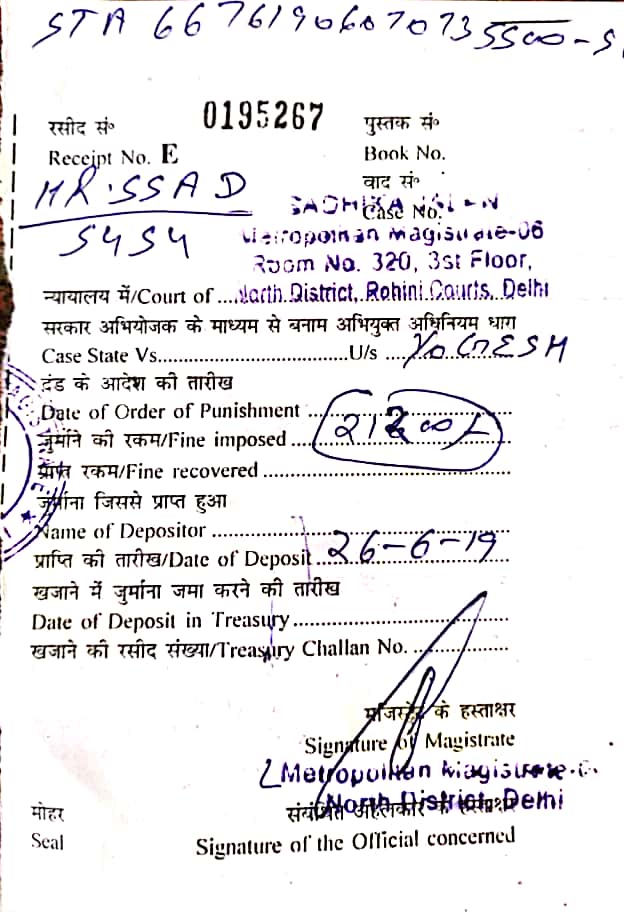 STA 66761906070735500-S
रसीद सं° 0195267 पुस्तक सं°
Receipt No. E Book No.
वाद सं°
HR.SSAD
Case No.
5454
Metropolitan Magistrate-06
Room No. 320, 3st Floor,
न्यायालय में/Court of ....North District, Rohini Courts, Delhi
सरकार अभियोजक के माध्यम से बनाम अभियुक्त अधिनियम धारा
Case State Vs..............................U/s .... YOGESH
दंड के आदेश की तारीख
Date of Order of Punishment ..............................
जुर्माने की रकम/Fine imposed .... 21200/-
प्राप्त रकम/Fine recovered ........................................
जुर्माना जिससे प्राप्त हुआ
Name of Depositor ................................................
प्राप्ति की तारीख/Date of Deposit .... 26-6-19
खजाने में जुर्माना जमा करने की तारीख
Date of Deposit in Treasury....................................
खजाने की रसीद संख्या/Treasury Challan No. ................
मजिस्ट्रेट के हस्ताक्षर
Signature of Magistrate
Metropolitan Magistrate
मोहर संबंधित अहलकार के हस्ताक्षर
North District, Delhi
Seal Signature of the Official concerned